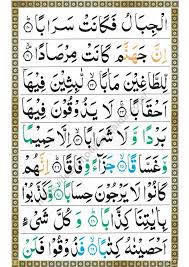 الْجِبَالُ فَكَانَتْ سَرَابًا ﴿٢٠﴾
اِنَّ جَهَنَّمَ كَانَتْ مِرْصَادًا ﴿٢١﴾
لِّلطَّاغِيْنَ مَاٰبًا ﴿٢٢﴾ لّٰبِثِيْنَ فِيْهَآ
اَحْقَابًا ﴿٢٣﴾ لَا يَذُوْقُوْنَ فِيْهَا
بَرْدًا وَّلَا شَرَابًا ﴿٢٤﴾ اِلَّا حَمِيْمًا
وَّغَسَّاقًا ﴿٢٥﴾ جَزَآءً وِّفَاقًا ﴿٢٦﴾ اِنَّهُمْ
كَانُوْا لَا يَرْجُوْنَ حِسَابًا ﴿٢٧﴾ وَّكَذَّبُوْا
بِاٰيٰتِنَا كِذَّابًا ﴿٢٨﴾ وَكُلَّ شَيْءٍ
اَحْصَيْنٰهُ كِتٰبًا ﴿٢٩﴾ فَذُوْقُوْا فَلَنْ